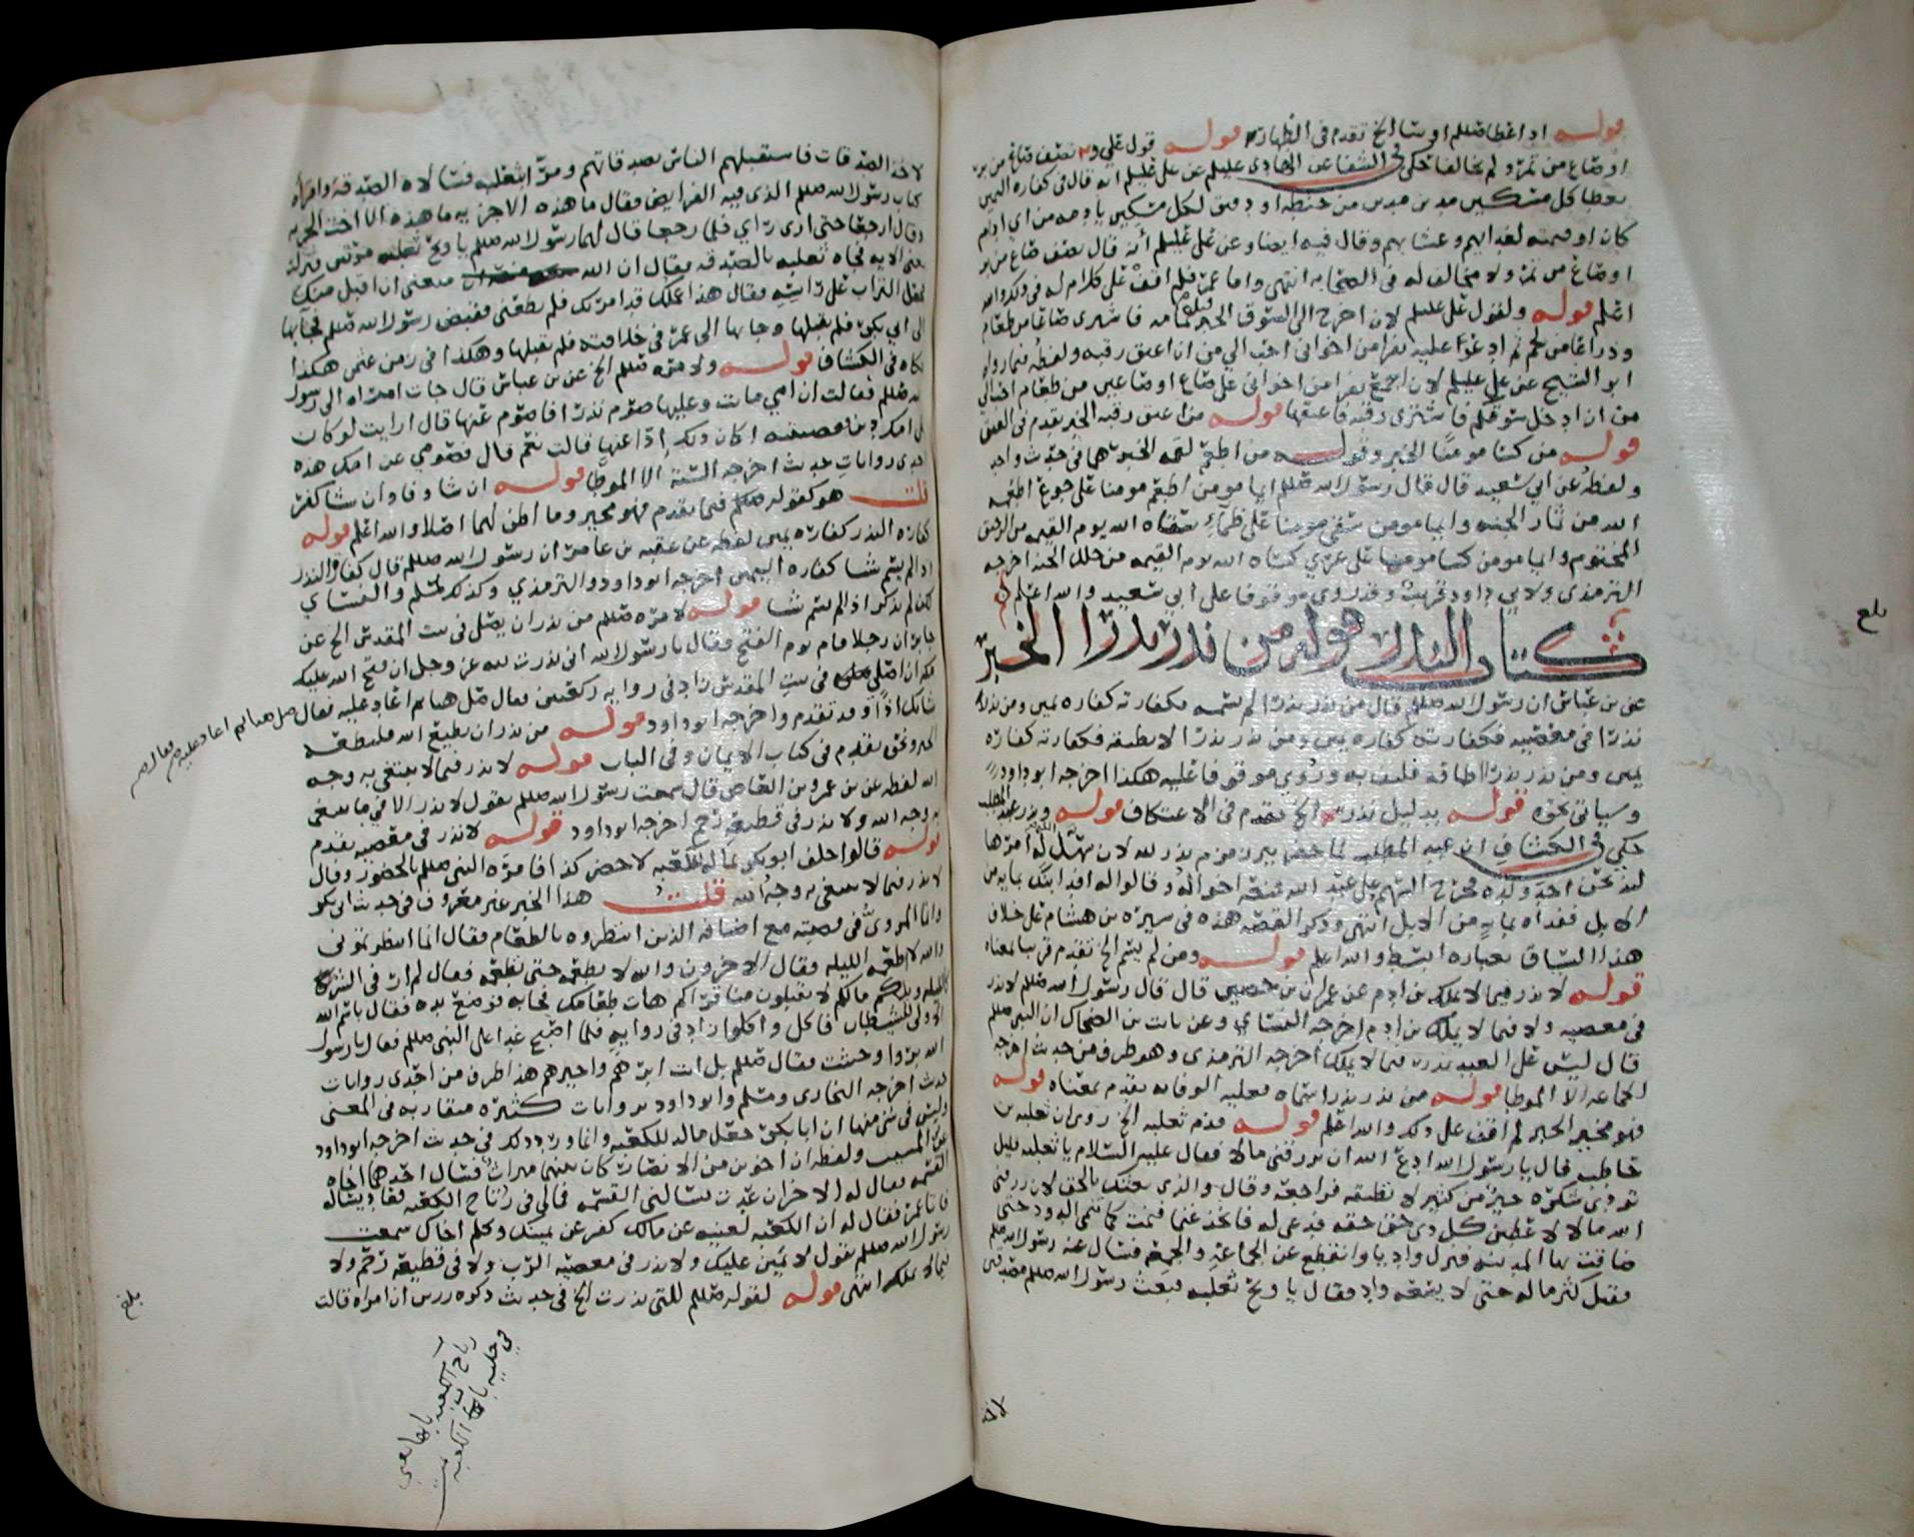 قوله اذا عطا صللم اوسا الخ تقدم في الظهار قوله قول علي وعمر نصف صاع من بر
او صاع من تمر ولم يخالفا حكى في الشفا عن الهادي عليلم عن علي عليلم انه قال في كفارة اليمين
يعطا كل مسكين مدين مدين من حنطة او دقيق لكل مسكين بادمه من اي ادام
كان او قيمته لغدائهم وعشائهم وقال فيه ايضا وعن علي عليلم أنه قال نصف صاع من بر
او صاع من تمر ولا مخالف له في الصحابه انتهى واما عمر فلم اقف على كلام له في ذلك والله
اعلم قوله ولقول علي عليلم لان اخرج الى السوق الخبر تمامه فاشتري صاعا من طعام
وذراعا من لحم ثم ادعوا عليه نفرا من اخواني احب الي من ان اعتق رقبه ولفظه فيما رواه
ابو الشيخ عن علي عليلم لان اجمع نفرا من اخواني على صاع او صاعين من طعام احب الي
من ان ادخل سوقكم فاشتري رقبه فاعتقها قوله من اعتق رقبه الخبر تقدم في العتق
قوله من كسا مومنا الخبر وقوله من اطعم لقمه الخبر هما في حديث واحد
ولفظه عن ابي سعيد قال قال رسول الله صللم ايما مومن اطعم مومنا على جوع اطعمه
الله من ثمار الجنه وايما مومن سقى مومنا على ظمأ سقاه الله يوم القيمه من الرحيق
المختوم وايما مومن كسا مومنا على عري كساه الله يوم القيمه من حلل الجنه اخرجه
الترمذي ولابي داود نحوه وقد روي موقوفا على ابي سعيد والله اعلم
كتاب النذر قوله من نذر نذرا الخبر
عن بن عباس ان رسول الله صللم قال من نذر نذرا لم يسمه فكفارته كفاره يمين ومن نذر
نذرا في معصيه فكفارته كفاره يمين ومن نذر نذرا لا يطيقه فكفارته كفاره
يمين ومن نذر نذرا اطاقه فليف به وروي موقوفا عليه هكذا اخرجه ابو داود
وسياتي نحوه قوله بدليل نذر الخ تقدم في الاعتكاف قوله ونذر عبد المطلب
حكي في الكشاف ان عبد المطلب لما حفر بير زمزم نذر لله لان سهل الله له امرها
لينحرن احد ولده فخرج السهم على عبد الله فمنعه اخواله وقالوا له افد ابنك بمايه من
الابل ففداه بمايه من الابل انتهى وذكر القصه هذه في سيره بن هشام على خلاف
هذا السياق بعباره ابسط والله اعلم قوله ومن لم يسم الخ تقدم قريبا معناه
قوله لا نذر فيما لا يملك بن ادم عن عمران بن حصين قال قال رسول الله صللم لا نذر
في معصيه ولا فيما لا يملك بن ادم اخرجه النسائي وعن ثابت بن الضحاك ان النبي صللم
قال ليس على العبد نذر فيما لا يملك اخرجه الترمذي وهو طرف من حديث اخرجه
الجماعه الا الموطا قوله من نذر نذرا سماه فعليه الوفا به تقدم معناه قوله
فهو مخير الخبر لم اقف على ذلك والله اعلم قوله قدم ثعلبه الخ روي ان ثعلبه بن
حاطب قال يا رسول الله ادع الله ان يرزقني مالا فقال عليه السلام يا ثعلبه قليل
تودي شكره خير من كثير لا تطيقه فراجعه وقال والذي بعثك بالحق لان رزقني
الله مالا لاعطين كل ذي حق حقه فدعى له فاتخذ غنما فنمت كما تنمى الدود حتى
ضاقت بها المدينه فنزل واديا وانقطع عن الجماعه والجمعه فسال عنه رسول الله صللم
فقيل كثر ماله حتى لا يسعه واد فقال يا ويح ثعلبه فبعث رسول الله صللم مصدقين
لاخذ
بلغ
لاخذ الصدقات فاستقبلهم الناس بصدقاتهم ومرا بثعلبه فسالاه الصدقه واقراه
كتاب رسول الله صللم الذي فيه الفرايض فقال ما هذه الا جزيه ما هذه الا اخت الجزيه
وقال ارجعا حتى ارى رايي فلما رجعا قال لهما رسول الله صللم يا ويح ثعلبه مرتين فنزلت
الايه فجاه ثعلبه بالصدقه فقال ان الله منعني ان اقبل منك
فجعل التراب على راسه فقال هذا عملك قد امرتك فلم تطعني فقبض رسول الله صللم فجا بها
الى ابي بكر فلم يقبلها وجا بها الى عمر في خلافته فلم يقبلها وهكذا في زمن عثمن هكذا
حكاه في الكشاف قوله ولامره صللم الخ عن بن عباس قال جات امراه الى رسول
الله صللم فقالت ان امي ماتت وعليها صوم نذر افاصوم عنها قال ارايت لو كان
على امك دين فقضيته اكان ذلك اذا عنها قالت نعم قال فصومي عن امك هذه
احدى روايات حديث اخرجه الستة الا الموطا قوله ان شا وفا وان شا كفر
قلت هو كقوله صللم فيما تقدم فهو مخير وما اظن لهما اصلا والله اعلم قوله
كفاره النذر كفاره يمين لفظه عن عقبه بن عامر ان رسول الله صللم قال كفاره النذر
اذا لم يسم شا كفاره اليمين اخرجه ابو داود والترمذي وكذلك لمسلم والنسائي
لكن لم يذكر اذا لم يسم شا قوله لامره صللم من نذر ان يصلي في بيت المقدس الخ عن
جابر ان رجلا قام يوم الفتح فقال يا رسول الله اني نذرت لله عز وجل ان فتح الله عليك
مكه ان اصلي في بيت المقدس زاد في روايه ركعتين فقال صل هاهنا ثم اعاد عليه فقال
شانك اذا وقد تقدم واخرجه ابو داود قوله من نذر ان يطيع الله فليطعه
الخبر ونحوه تقدم في كتاب الايمان وفي الباب قوله لا نذر فيما لا يبتغى به وجه
الله لفظه عن بن عمرو بن العاص قال سمعت رسول الله صللم يقول لا نذر الا فيما يبتغى
به وجه الله ولا نذر في قطيعه رحم اخرجه ابو داود قوله لا نذر في معصيه تقدم
قوله قالوا حلف ابو بكر بماله للكعبه لاحضر كذا فامره النبي صللم بالحضور وقال
لا نذر فيما لا يبتغى به وجه الله قلت هذا الخبر غير معروف في حديث ابي بكر
وانما المروي في قصته مع اضيافه الذين انتظروه بالطعام فقال انما انتظرتموني
والله لا اطعمه الليله فقال الاخرون والله لا نطعمه حتى تطعمه فقال لم ار في الشر
كالليله ويلكم مالكم لا تقبلون منا قراكم هات طعامك فجا به فوضع يده فقال باسم الله
الاولى للشيطان فاكل واكلوا زاد في روايه فلما اصبح غدا على النبي صللم فقال يا رسول
الله بروا وحنثت فقال صللم بل انت ابرهم واخيرهم هذا طرف من احدى روايات
حديث اخرجه البخاري ومسلم وابو داود بروايات كثيره متقاربه في المعنى
وليس في شي منها ان ابا بكر جعل ماله للكعبه وانما ورد ذلك في حديث اخرجه ابو داود
عن بن المسيب ولفظه ان اخوين من الانصار كان بينهما ميراث فسال احدهما اخاه
القسمه فقال له الاخر ان عدت تسالني القسمه فمالي في رتاج الكعبه فعاد يساله
فاتا عمر فقال له ان الكعبه لغنيه عن مالك كفر عن يمينك وكلم اخاك سمعت
رسول الله صللم يقول لا يمين عليك ولا نذر في معصيه الرب ولا في قطيعه رحم ولا
فيما لا يملك انتهى قوله لقوله صللم للتي نذرت الخ في حديث ذكره رزين ان امراه قالت
صل هاهنا ثم اعاد عليه فقال
بلغ